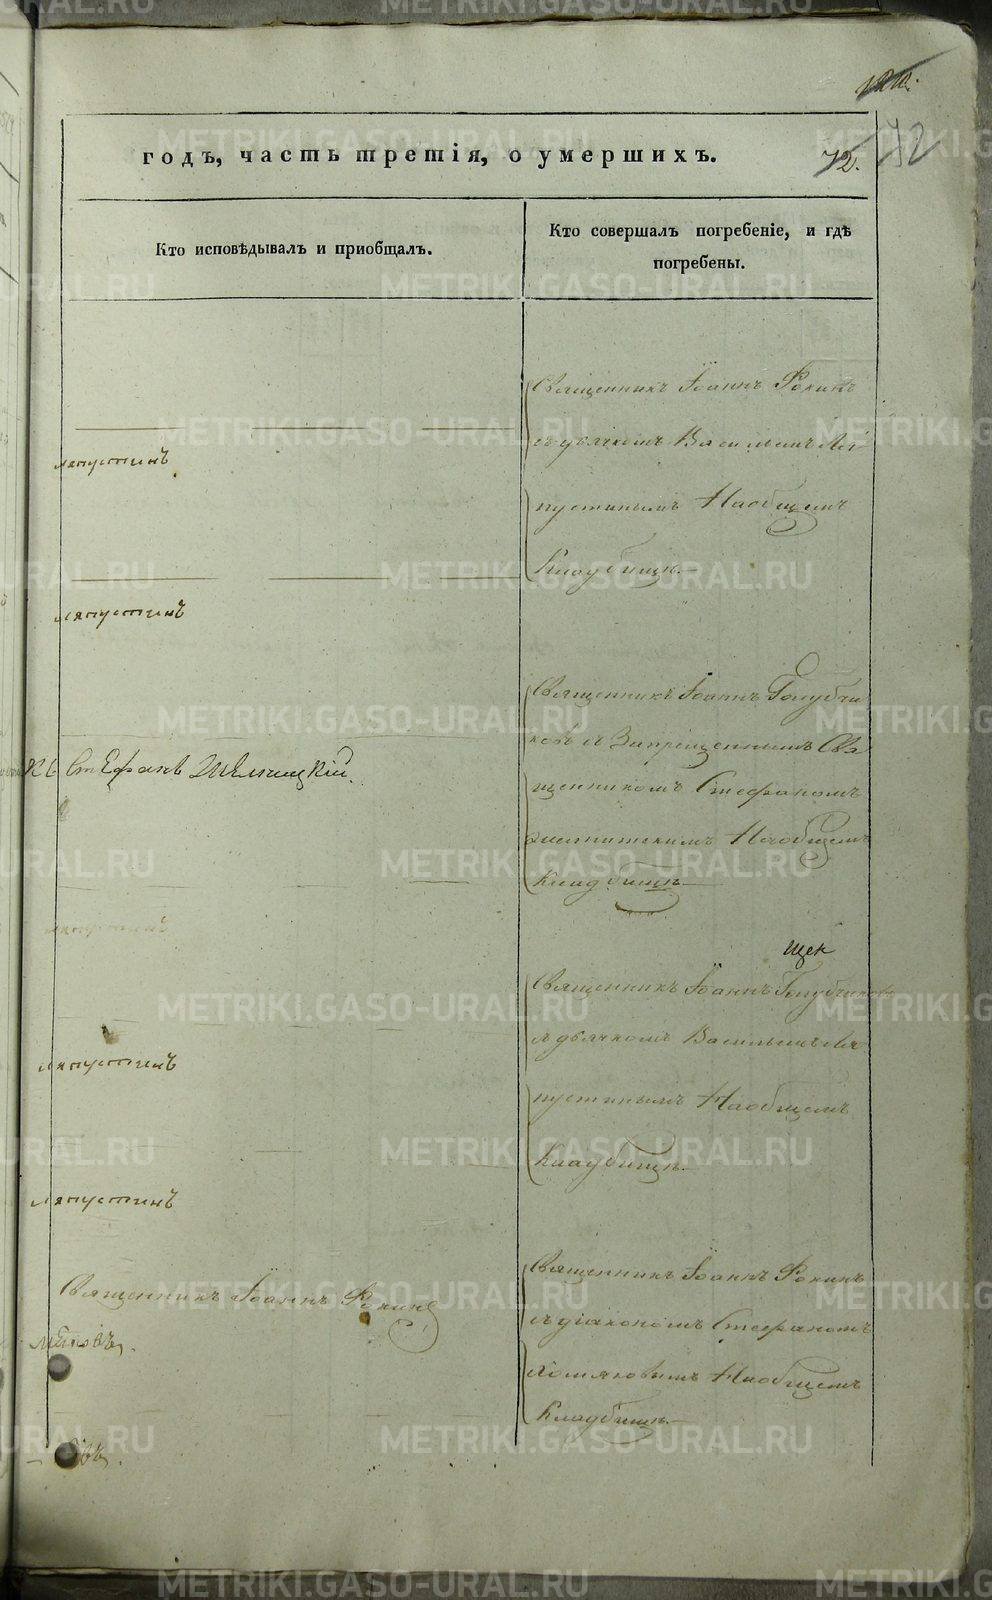 72
72.
годъ, часть третія, о умершихъ.
Кто исповѣдывалъ и приобщалъ.
Кто совершалъ погребеніе, и гдѣ
погребены.
Священникъ Іоаннъ Фокинъ
съ дьячкомъ Васильемъ Ля
ляпустинъ
пустинымъ На общемъ
Кладбищѣ.
ляпустинъ
Священникъ Іоаннъ Голубчи
ковъ съ Запрещеннымъ Свя
Стефанъ
щенникомъ Стефаномъ
На общемъ
кладбищѣ
щек
Священникъ Іоаннъ Голубчиковъ
съ дьячкомъ Васильемъ Ля
ляпустинъ
пустинымъ На общемъ
Кладбищѣ.
ляпустинъ
Священникъ Іоаннъ Фокинъ
Священникъ Іоаннъ Фокинъ
съ діакономъ Стефаномъ
Хомяковымъ На общемъ
Кладбищѣ.
METRIKI.GASO-URAL.RU